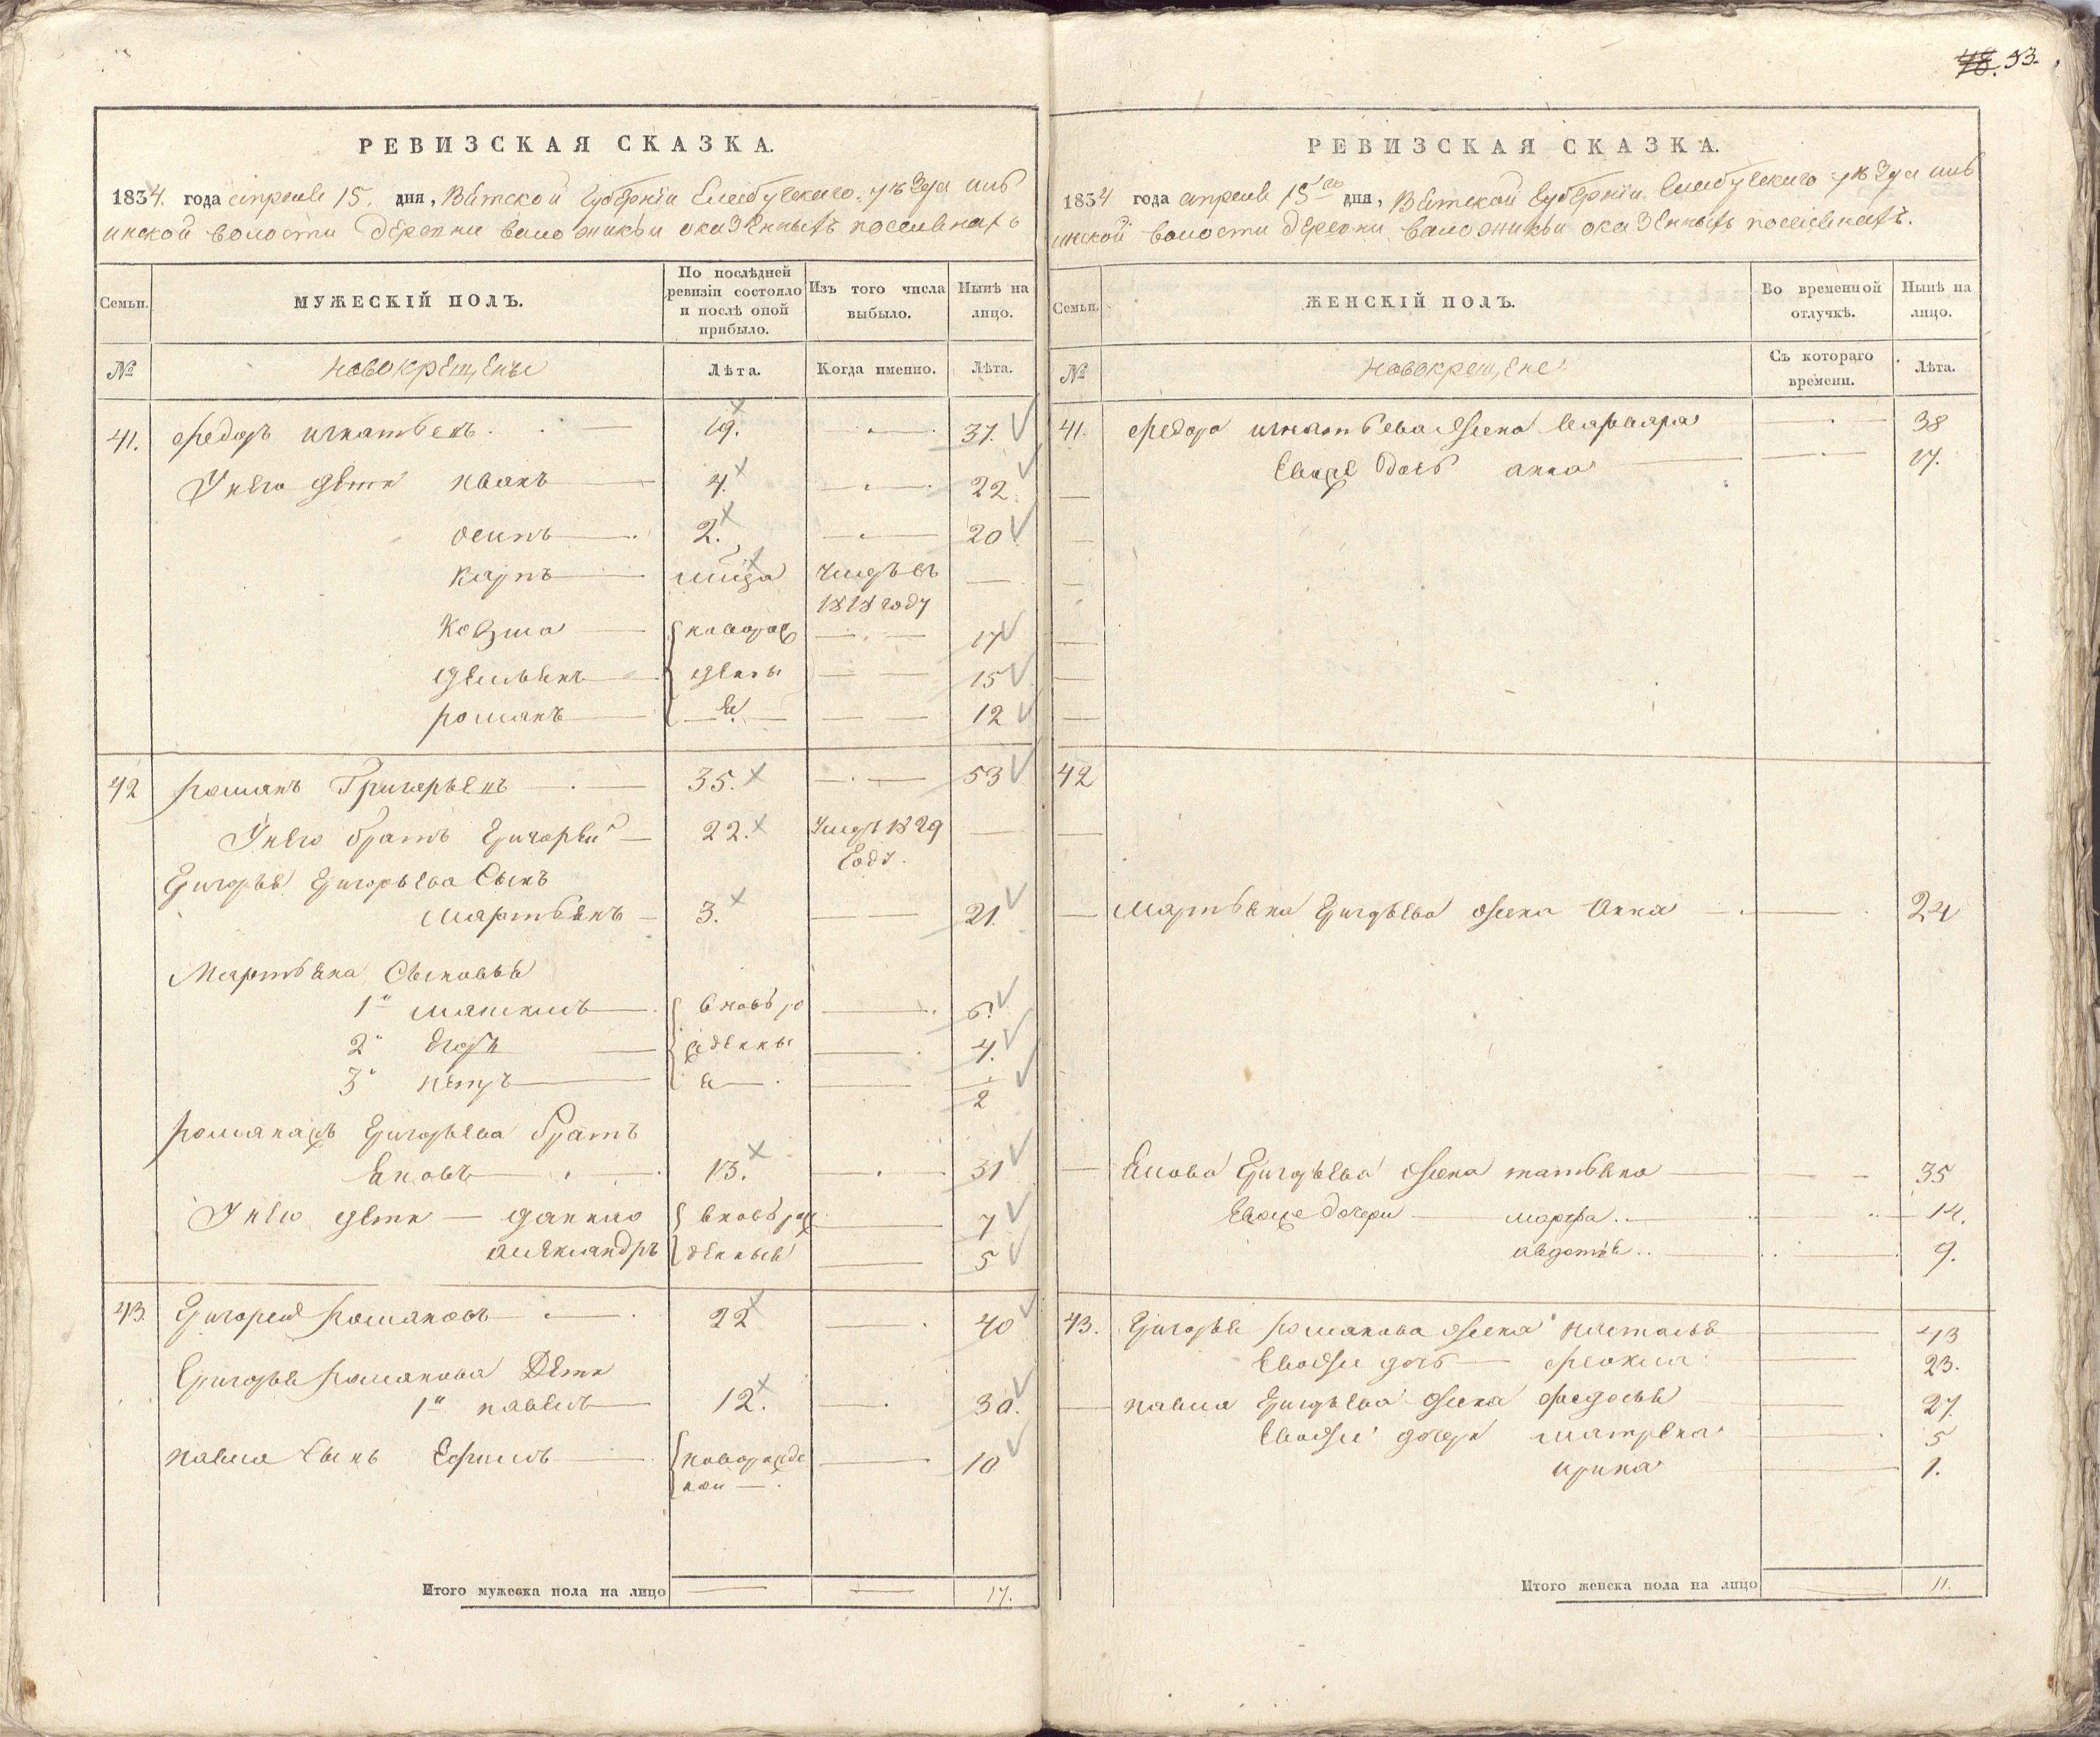 48. 53.
РЕВИЗСКАЯ СКАЗКА.
1834. года апреля 15. дня, Вятской Губернiи Елабускаго уезда
инской волости деревни казенныхъ поселенахъ
Семьи. МУЖЕСКIЙ ПОЛЪ. По послѣдней ревизiи состояло и послѣ оной прибыло. Изъ того числа выбыло. Нынѣ на лицо.
№ новокрещены Лѣта. Когда именно. Лѣта.
41. Федоръ игнатьевъ 19. 37.
У него дети иванъ 4. 22
осипъ 2. 20
карпъ умеръ въ
1818 году
Козма новорож 17
Демьянъ дены 15
романъ 12
42 романъ Григорьевъ 35. 53
У него братъ Григорей 22. Умеръ 1829
Году.
Григорья Григорьева Сынъ
мартьянъ 3. 21.
Мартьяна Сыновья
1й максимъ вновь ро 6.
2й Егоръ жденны 4.
3й петръ е 2
романажъ Григорьева братъ
Яковъ 13. 31
У него дети данило вновь рож 7
александръ денные 5
43. Григорей романовъ 22 40
Григорья романова Дети
1й павелъ 12. 30.
павла Сынъ Ефимъ новорожде 10
ной
Итого мужеска пола на лицо 17.
РЕВИЗСКАЯ СКАЗКА.
1834 года апреля 15го дня, Вятской Губернiи Елабускаго уезда
инской волости деревни казенныхъ поселенахъ.
Семьи. ЖЕНСКIЙ ПОЛЪ. Во временной отлучкѣ. Нынѣ на лицо.
№ новокрещене Съ котораго времени. Лѣта.
41. Федора игнатьева жена варвара 38
Евоже дочь анна 17.
42
Мартьяна Григорьева жена Анна 24
Якова Григорьева жена татьяна 35
Евоже дочери марфа. 14.
авдотья.. 9.
43. Григорья романова жена настасья 43
Евоже дочь фекла 23.
павла Григорьева жена федосья 27.
Евоже дочери матрена 5
ирина 1.
Итого женска пола на лицо 11.